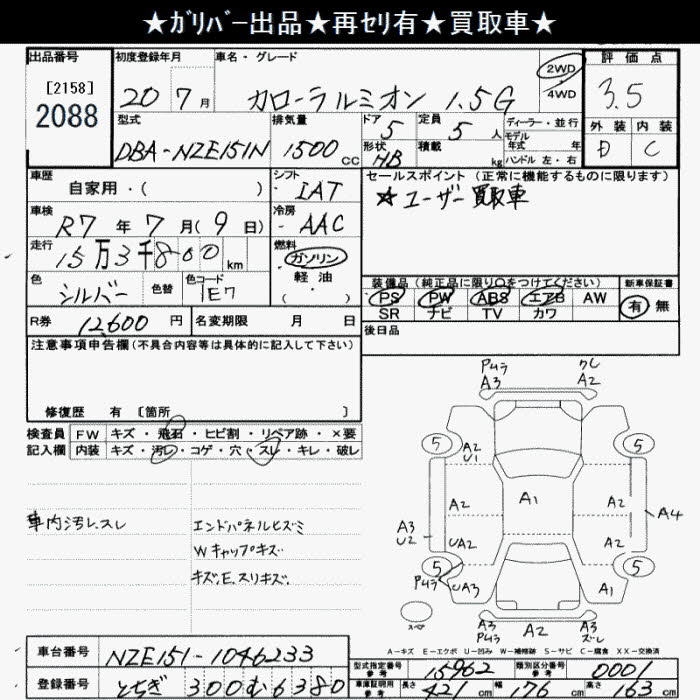 ★ｶﾞﾘﾊﾞｰ出品★再ｾﾘ有★買取車★
出品番号
[2158]
2088
初度登録年月
20 7月
車名・グレード
カローラルミオン 1.5G
2WD
4WD
評価点
3.5
外装 内装
D C
型式
DBA-NZE151N
排気量
1500cc
ドア
5
定員
5人
形状
HB
積載
kg
ディーラー・並行
モデル
年式 年
ハンドル 左・右
車歴
自家用・( )
シフト
IAT
車検
R7年7月(9日)
冷房
AAC
走行
15万3千800km
燃料
ガソリン
軽油
( )
色
シルバー
色替
色コード
1E7
R券 12,600円
名変期限 月 日
セールスポイント (正常に機能するものに限ります)
☆ユーザー買取車
装備品 (純正品に限り○をつけてください)
新車保証書
PS PW ABS エアB AW
有 無
SR ナビ TV カワ
後日品
注意事項申告欄 (不具合内容等は具体的に記入して下さい)
修復歴 有 〔箇所 〕
検査員 FW キズ・飛石・ヒビ割・リペア跡・×要
記入欄 内装 キズ・汚レ・コゲ・穴・スレ・キレ・破レ
車内汚レ.スレ
エンドパネルヒズミ
Wキャップキズ
キズ.E.スリキズ.
Pムラ
A3
クレ
A2
5
5
A2
U1
A1
A2
A2
A3
U2
A4
UA2
A2
5
5
Pムラ
UA3
A1
スペア
A3
Pムラ
A2
A3
ズレ
A－キズ E－エクボ U－凹み W－補修跡 S－サビ C－腐食 XX－交換済
車台番号 NZE151-1046233
登録番号 とちぎ 300む6380
型式指定番号
参考
15962
類別区分番号
参考
0001
車庫証明用
参考
長さ 421cm 幅 176cm 高さ 163cm